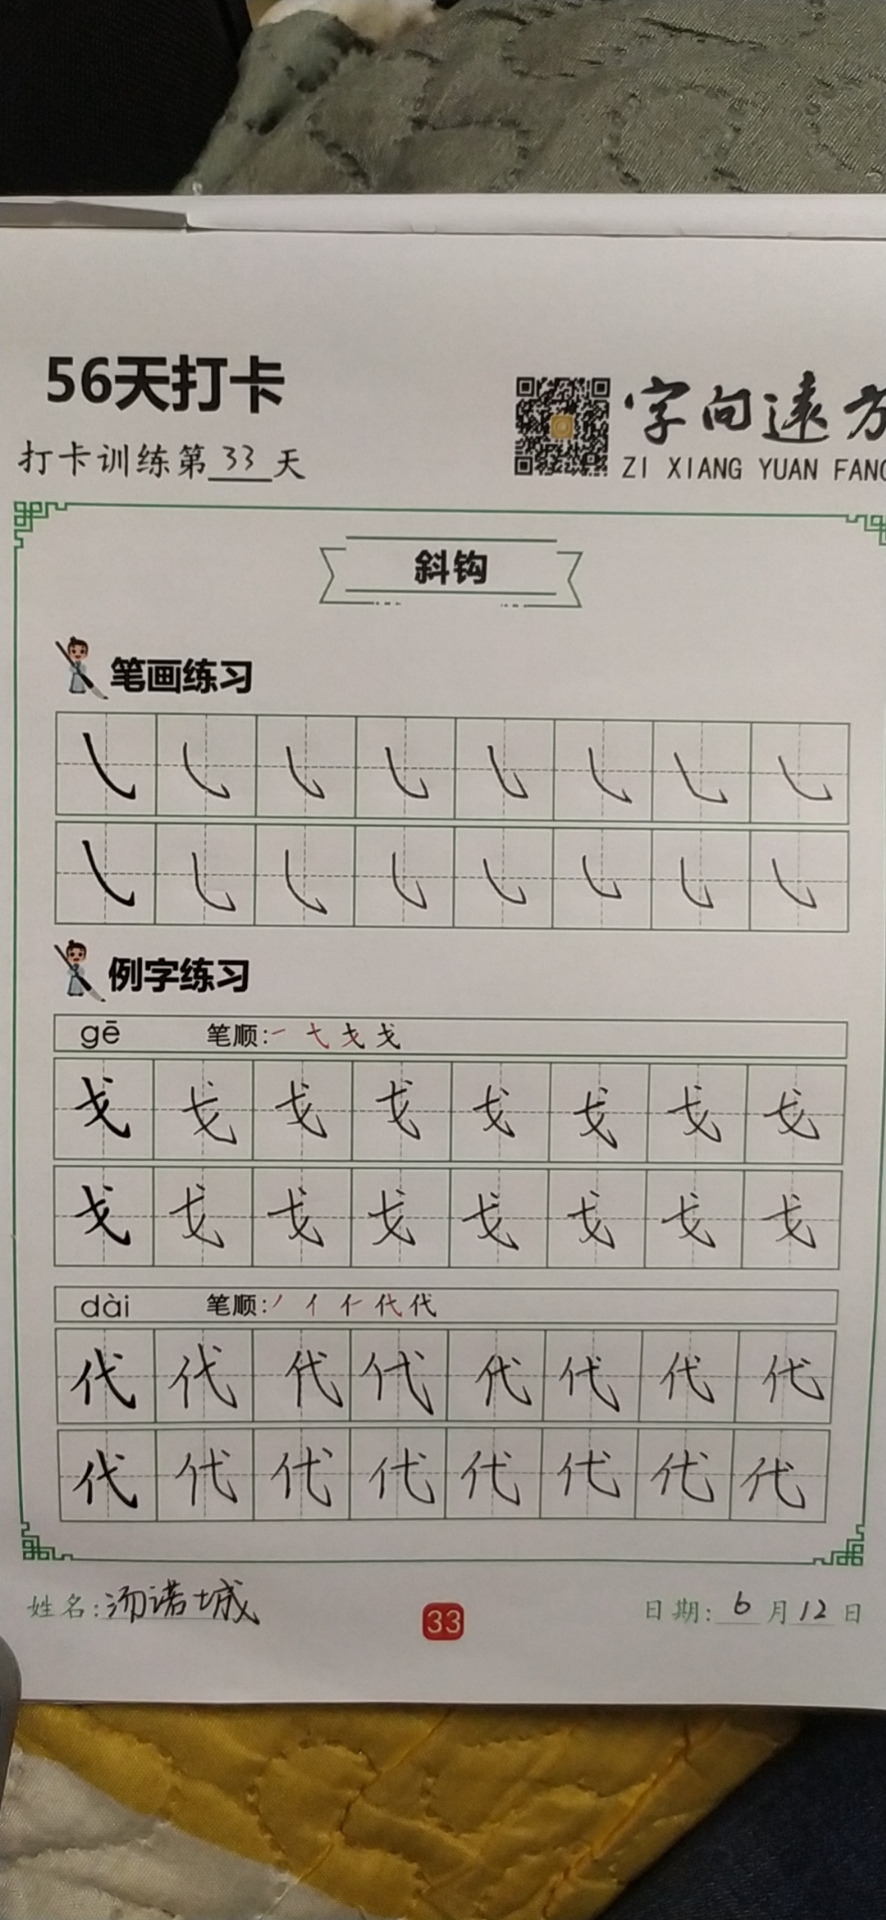 56天打卡
打卡训练第33天
字向远方
ZI XIANG YUAN FANG
斜钩
笔画练习
㇂ ㇂ ㇂ ㇂ ㇂ ㇂ ㇂ ㇂
㇂ ㇂ ㇂ ㇂ ㇂ ㇂ ㇂ ㇂
例字练习
gē 笔顺:㇐ 弋 戈 戈
戈 戈 戈 戈 戈 戈 戈 戈
戈 戈 戈 戈 戈 戈 戈 戈
dài 笔顺:丿 亻 仁 代 代
代 代 代 代 代 代 代 代
代 代 代 代 代 代 代 代
姓名:汤诺城
33
日期:6月12日